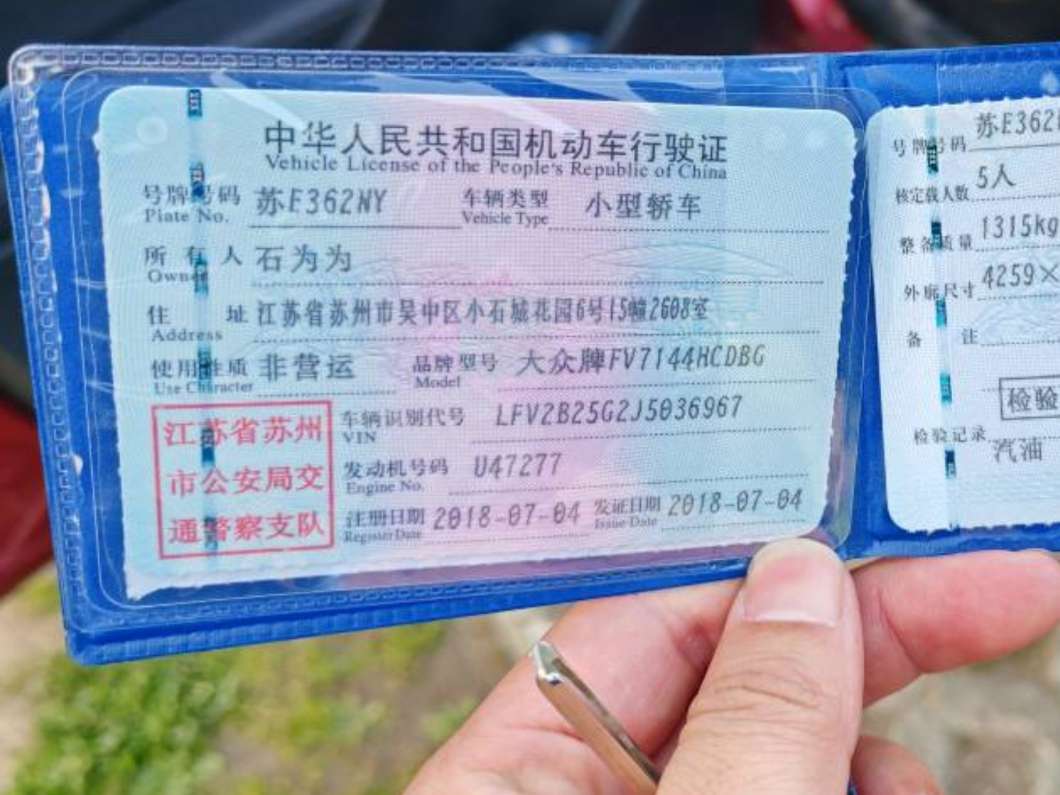 中华人民共和国机动车行驶证
Vehicle License of the People's Republic of China
号牌号码 苏E362NY 车辆类型 小型轿车
Plate No. Vehicle Type
所有人 石为为
Owner
住址 江苏省苏州市吴中区小石城花园6号15幢2608室
Address
使用性质 非营运 品牌型号 大众牌FV7144HCDBG
Use Character Model
江苏省苏州
市公安局交
通警察支队
车辆识别代号 LFV2B25G2J5036967
VIN
发动机号码 U47277
Engine No.
注册日期 2018-07-04 发证日期 2018-07-04
Register Date Issue Date
号牌号码 苏E362
核定载人数 5人
整备质量 1315kg
外廓尺寸 4259×
备注
检验
检验记录 汽油